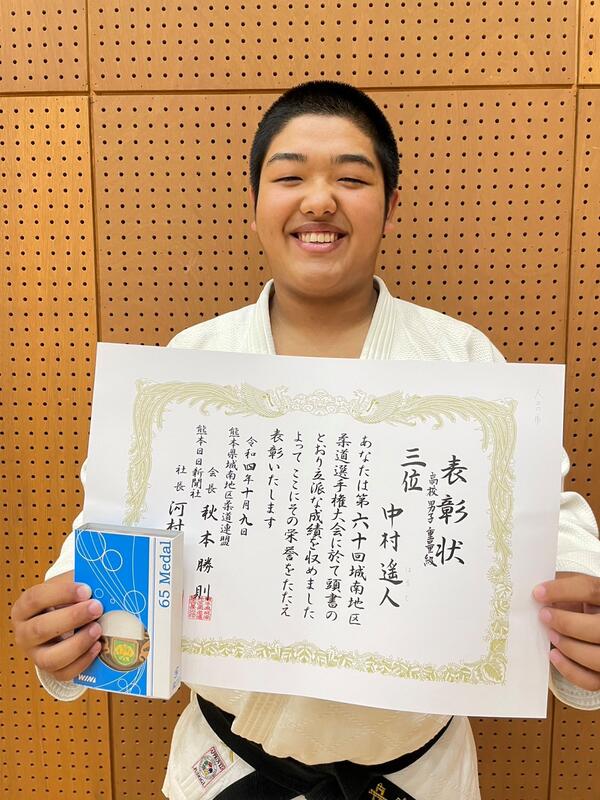 表彰状
高校男子重量級
三位 中村遥人
はると
あなたは第六十回城南地区
柔道選手権大会に於て頭書の
とおり立派な成績を収めました
よってここにその栄誉をたたえ
表彰いたします
令和四年十月九日
熊本県城南地区柔道連盟
会長 秋本勝則
熊本日日新聞社
社長 河村
65 Medal
WINS